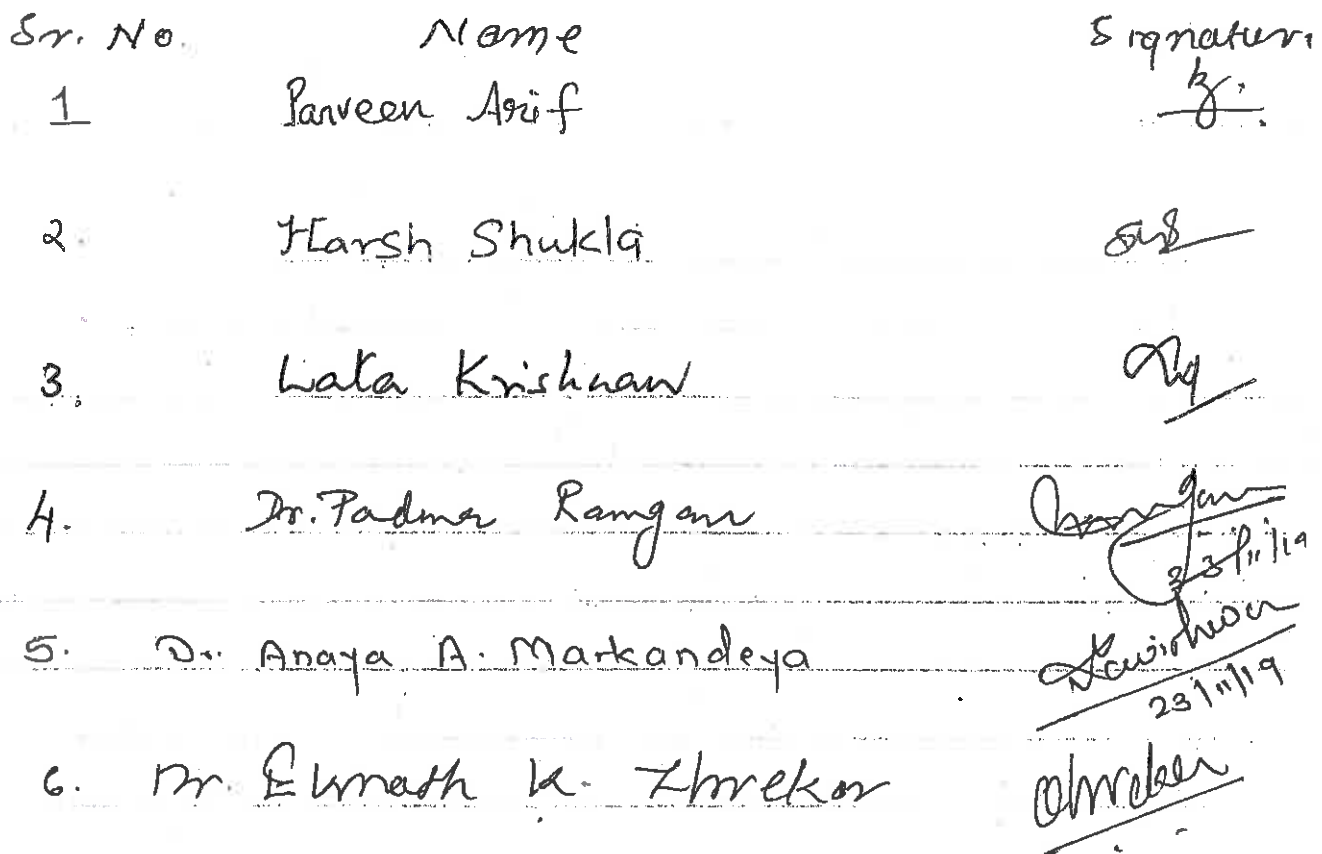 Sr. No. Name Signature
1 Parveen Arif
2. Harsh Shukla
3. Lata Krishnan
4. Dr. Padma Rangan
23/11/19
5. Dr. Anaya A. Markandeya
23/11/19
6. Dr. Eknath K.